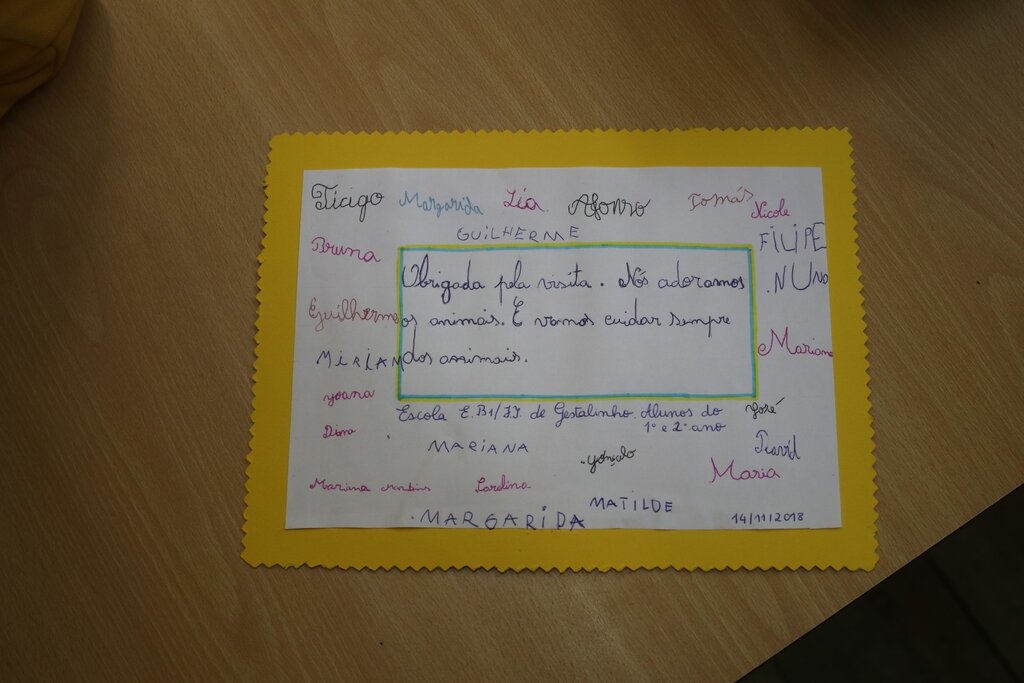 Tiago Margarida Lia Afonso Tomás Nicole
GUILHERME
FILIPE
Bruna
NUNO
Obrigada pela visita. Nós adoramos
os animais. E vamos cuidar sempre
dos animais.
Guilherme
MIRIAM
Mariana
Joana
Escola E.B1/J.I. de Gestalinho. Alunos do
1º e 2º ano
José
Diana
MARIANA
Gonçalo
David
Maria
Mariana Martins
Carolina
MATILDE
MARGARIDA
14/11/2018